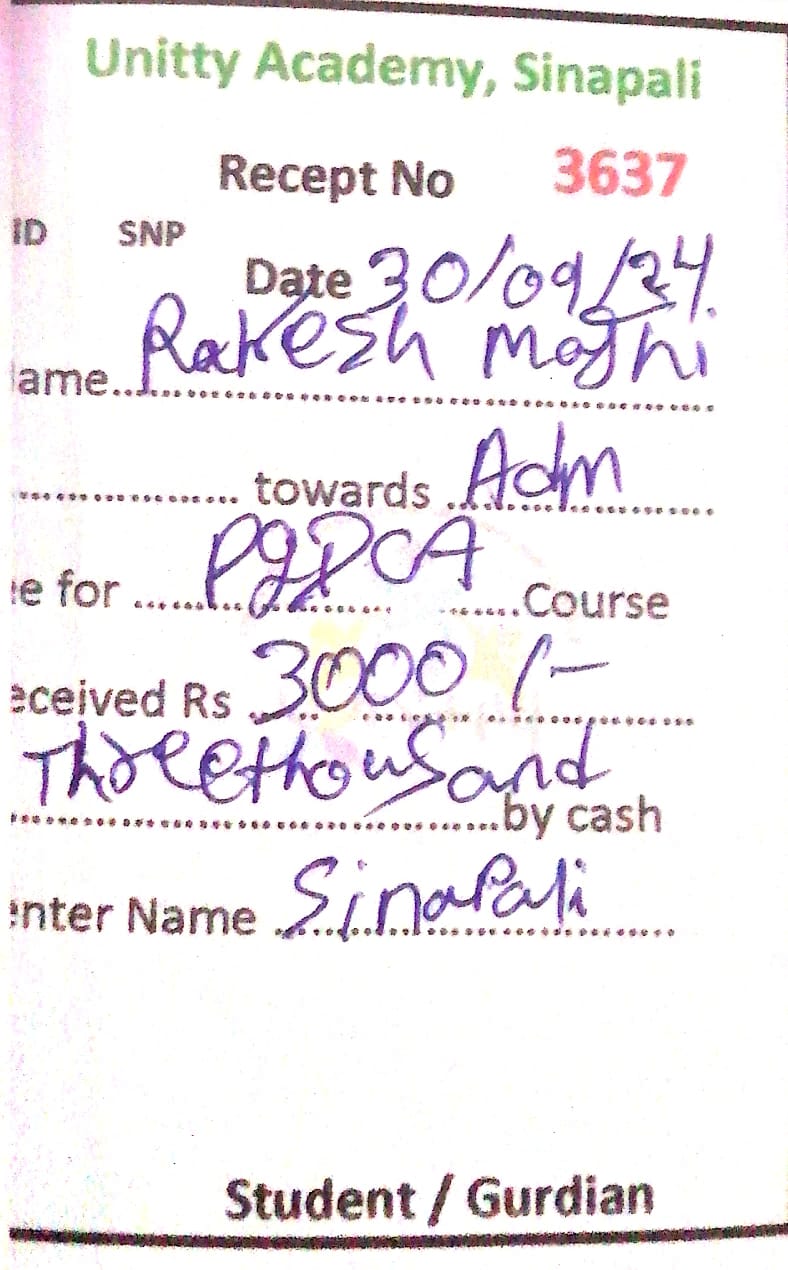 Unitty Academy, Sinapali
Recept No 3637
ID SNP
Date 30/09/24
ame Rakesh Majhi
towards Adm
e for PGDCA Course
eceived Rs 3000 /-
Three thousand
by cash
enter Name Sinapali
Student / Gurdian